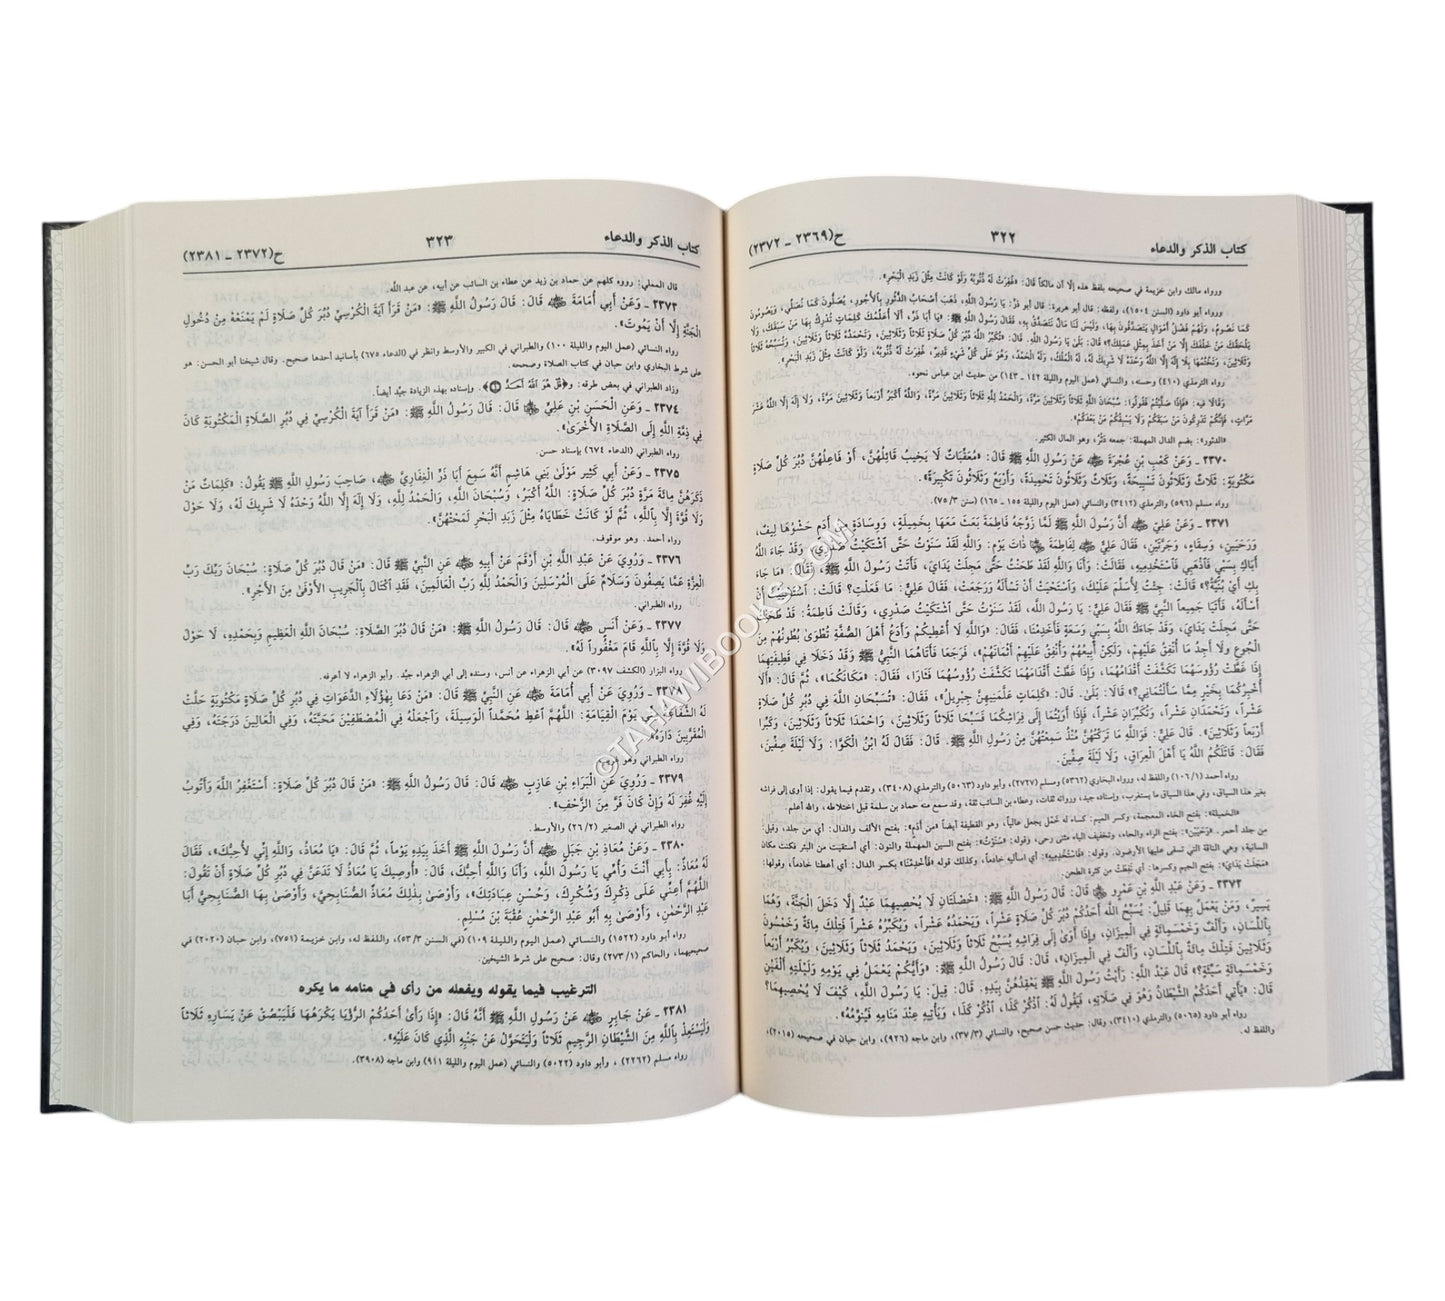 كتاب الذكر والدعاء ٣٢٢ ح(٢٣٦٩ ـ ٢٣٧٢)
ورواه مالك وابن خزيمة في صحيحه بلفظ هذه إلَّا أن مالكاً قال: «غُفِرَتْ لَهُ ذُنُوبُهُ وَلَوْ كَانَتْ مِثْلَ زَبَدِ الْبَحْرِ».
ورواه أبو داود (السنن ١٥٠٤)، ولفظه: قال أبو هريرة: قال أبو ذَرٍّ: يَا رَسُولَ اللَّهِ، ذَهَبَ أَصْحَابُ الدُّثُورِ بِالأُجُورِ، يُصَلُّونَ كَمَا نُصَلِّي، وَيَصُومُونَ
كَمَا نَصُومُ، وَلَهُمْ فُضُلُ أَمْوَالٍ يَتَصَدَّقُونَ بِهَا، وَلَيْسَ لَنَا مَالٌ نَتَصَدَّقُ بِهِ، فَقَالَ رَسُولُ اللَّهِ ﷺ: «يَا أَبَا ذَرٍّ، أَلَا أُعَلِّمُكَ كَلِمَاتٍ تُدْرِكُ بِهَا مَنْ سَبَقَكَ، وَلَا
يَلْحَقُكَ مَنْ خَلْفَكَ إِلَّا مَنْ أَخَذَ بِمِثْلِ عَمَلِكَ؟» قَالَ: بَلَى يَا رَسُولَ اللَّهِ. قَالَ: «تُكَبِّرُ اللَّهَ دُبُرَ كُلِّ صَلَاةٍ ثَلَاثاً وَثَلَاثِينَ، وَتَحْمَدُهُ ثَلَاثاً وَثَلَاثِينَ، وَتُسَبِّحُهُ ثَلَاثاً
وَثَلَاثِينَ، وَتَخْتُمُهَا بِلَا إِلٰهَ إِلَّا اللَّهُ وَحْدَهُ لَا شَرِيكَ لَهُ، لَهُ الْمُلْكُ، وَلَهُ الْحَمْدُ، وَهُوَ عَلَى كُلِّ شَيْءٍ قَدِيرٌ، غُفِرَتْ لَهُ ذُنُوبُهُ، وَلَوْ كَانَتْ مِثْلَ زَبَدِ الْبَحْرِ».
رواه الترمذي (٤١٠) وحسنه، والنسائي (عمل اليوم والليلة ١٤٢ ـ ١٤٣) من حديث ابن عباس نحوه.
وَقَالَا فِيهِ: «فَإِذَا صَلَّيْتُمْ فَقُولُوا: سُبْحَانَ اللَّهِ ثَلَاثاً وَثَلَاثِينَ مَرَّةً، وَالْحَمْدُ لِلَّهِ ثَلَاثاً وَثَلَاثِينَ مَرَّةً، وَاللَّهُ أَكْبَرُ أَرْبَعاً وَثَلَاثِينَ مَرَّةً، وَلَا إِلٰهَ إِلَّا اللَّهُ عَشْرَ
مَرَّاتٍ، فَإِنَّكُمْ تُدْرِكُونَ مَنْ سَبَقَكُمْ وَلَا يَسْبِقُكُمْ مَنْ بَعْدَكُمْ».
«الدثور»: بضم الدال المهملة: جمعه دَثْر، وهو المال الكثير.
٢٣٧٠ ـ وَعَنْ كَعْبِ بْنِ عُجْرَةَ ﷺ عَنْ رَسُولِ اللَّهِ ﷺ قَالَ: «مُعَقِّبَاتٌ لَا يَخِيبُ قَائِلُهُنَّ، أَوْ فَاعِلُهُنَّ دُبُرَ كُلِّ صَلَاةٍ
مَكْتُوبَةٍ: ثَلَاثٌ وَثَلَاثُونَ تَسْبِيحَةً، وَثَلَاثٌ وَثَلَاثُونَ تَحْمِيدَةً، وَأَرْبَعٌ وَثَلَاثُونَ تَكْبِيرَةً».
رواه مسلم (٥٩٦) والترمذي (٣٤١٢) والنسائي (عمل اليوم والليلة ١٥٥ ـ ١٦٥) (سنن ٧٥/٣).
٢٣٧١ ـ وَعَنْ عَلِيٍّ أَنَّ رَسُولَ اللَّهِ ﷺ لَمَّا زَوَّجَهُ فَاطِمَةَ بَعَثَ مَعَهَا بِخَمِيلَةٍ، وَوِسَادَةٍ مِنْ أَدَمٍ حَشْوُهَا لِيفٌ،
وَرَحَيَيْنِ، وَسِقَاءٍ، وَجَرَّتَيْنِ، فَقَالَ عَلِيٌّ لِفَاطِمَةَ ذَاتَ يَوْمٍ: وَاللَّهِ لَقَدْ سَنَوْتُ حَتَّى اشْتَكَيْتُ صَدْرِي، وَقَدْ جَاءَ اللَّهُ
أَبَاكِ بِسَبْيٍ فَاذْهَبِي فَاسْتَخْدِمِيهِ، فَقَالَتْ: وَأَنَا وَاللَّهِ لَقَدْ طَحَنْتُ حَتَّى مَجِلَتْ يَدَايَ، فَأَتَتْ رَسُولَ اللَّهِ ﷺ، فَقَالَ: «مَا جَاءَ
بِكِ أَيْ بُنَيَّةُ؟» قَالَتْ: جِئْتُ لِأُسَلِّمَ عَلَيْكَ، وَاسْتَحْيَتْ أَنْ تَسْأَلَهُ وَرَجَعَتْ، فَقَالَ عَلِيٌّ: مَا فَعَلْتِ؟ قَالَتْ: اسْتَحْيَيْتُ أَنْ
أَسْأَلَهُ، فَأَتَيَا جَمِيعاً النَّبِيَّ ﷺ فَقَالَ عَلِيٌّ: يَا رَسُولَ اللَّهِ، لَقَدْ سَنَوْتُ حَتَّى اشْتَكَيْتُ صَدْرِي، وَقَالَتْ فَاطِمَةُ: قَدْ طَحَنْتُ
حَتَّى مَجِلَتْ يَدَايَ، وَقَدْ جَاءَكَ اللَّهُ بِسَبْيٍ وَسَعَةٍ فَأَخْدِمْنَا، فَقَالَ: «وَاللَّهِ لَا أُعْطِيكُمْ وَأَدَعُ أَهْلَ الصُّفَّةِ تُطْوَىٰ بُطُونُهُمْ مِنَ
الْجُوعِ وَلَا أَجِدُ مَا أُنْفِقُ عَلَيْهِمْ، وَلَكِنْ أَبِيعُهُمْ وَأُنْفِقُ عَلَيْهِمْ أَثْمَانَهُمْ»، فَرَجَعَا فَأَتَاهُمَا النَّبِيُّ ﷺ وَقَدْ دَخَلَا فِي قَطِيفَتِهِمَا
إِذَا غَطَّتْ رُؤُوسَهُمَا تَكَشَّفَتْ أَقْدَامُهُمَا، وَإِذَا غَطَّتْ أَقْدَامَهُمَا تَكَشَّفَتْ رُؤُوسُهُمَا فَثَارَا، فَقَالَ: «مَكَانَكُمَا»، ثُمَّ قَالَ: «أَلَا
أُخْبِرُكُمَا بِخَيْرٍ مِمَّا سَأَلْتُمَانِي؟» قَالَا: بَلَىٰ. قَالَ: «كَلِمَاتٍ عَلَّمَنِيهِنَّ جِبْرِيلُ»، فَقَالَ: «تُسَبِّحَانِ اللَّهَ فِي دُبُرِ كُلِّ صَلَاةٍ
عَشْراً، وَتَحْمَدَانِ عَشْراً، وَتُكَبِّرَانِ عَشْراً، فَإِذَا أَوَيْتُمَا إِلَى فِرَاشِكُمَا فَسَبِّحَا ثَلَاثاً وَثَلَاثِينَ، وَاحْمَدَا ثَلَاثاً وَثَلَاثِينَ، وَكَبِّرَا
أَرْبَعاً وَثَلَاثِينَ». قَالَ عَلِيٌّ: فَوَاللَّهِ مَا تَرَكْتُهُنَّ مُنْذُ سَمِعْتُهُنَّ مِنْ رَسُولِ اللَّهِ ﷺ. قَالَ: فَقَالَ لَهُ ابْنُ الْكَوَّا: وَلَا لَيْلَةَ صِفِّينَ،
فَقَالَ: قَاتَلَكُمُ اللَّهُ يَا أَهْلَ الْعِرَاقِ، وَلَا لَيْلَةَ صِفِّينَ.
رواه أحمد (١٠٦/١) واللفظ له، ورواه البخاري (٥٣٦٢) ومسلم (٢٧٢٧)، وأبو داود (٥٠٦٣) والترمذي (٣٤٠٨)، وتقدم فيما يقول: إذا أوى إلى فراشه
بغير هذا السياق، وفي هذا السياق ما يستغرب، وإسناده جيد، ورواته ثقات، وعطاء بن السائب ثقة، وقد سمع منه حماد بن سلمة قبل اختلاطه، والله أعلم.
«الخميلة»: بفتح الخاء المعجمة، وكسر الميم: كساء له خمل يجعل غالباً، وهو القطيفة أيضاً «من أَدَمٍ»: بفتح الألف والدال: أي من جلد، وقيل:
من جلد أحمر. «رَحَيَيْنِ»: بفتح الراء والحاء، وتخفيف الياء مثنى رحى، وقوله: «سَنَوْتُ»: بفتح السين المهملة والنون: أي استقيت من البئر فكنت مكان
السانية، وهي الناقة التي تسقى عليها الأرضون. وقوله: «فَاسْتَخْدِمِيهِ»: أي اسأليه خادماً، وكذلك قوله «فَأَخْدِمْنَا» بكسر الدال: أي أعطنا خادماً، وقولها:
«مَجَلَتْ يَدَايَ»: بفتح الجيم وكسرها: أي تَقَطَّعَتْ من كثرة الطحن.
٢٣٧٢ ـ وَعَنْ عَبْدِ اللَّهِ بْنِ عَمْرٍو قَالَ: قَالَ رَسُولُ اللَّهِ ﷺ: «خَصْلَتَانِ لَا يُحْصِيهِمَا عَبْدٌ إِلَّا دَخَلَ الْجَنَّةَ، وَهُمَا
يَسِيرٌ، وَمَنْ يَعْمَلُ بِهِمَا قَلِيلٌ: يُسَبِّحُ اللَّهَ أَحَدُكُمْ دُبُرَ كُلِّ صَلَاةٍ عَشْراً، وَيَحْمَدُهُ عَشْراً، وَيُكَبِّرُهُ عَشْراً فَتِلْكَ مِائَةٌ وَخَمْسُونَ
بِاللِّسَانِ، وَأَلْفٌ وَخَمْسُمِائَةٍ فِي الْمِيزَانِ، وَإِذَا أَوَى إِلَى فِرَاشِهِ يُسَبِّحُ ثَلَاثاً وَثَلَاثِينَ، وَيَحْمَدُ ثَلَاثاً وَثَلَاثِينَ، وَيُكَبِّرُ أَرْبَعاً
وَثَلَاثِينَ فَتِلْكَ مِائَةٌ بِاللِّسَانِ، وَأَلْفٌ فِي الْمِيزَانِ»، قَالَ: قَالَ رَسُولُ اللَّهِ ﷺ: «وَأَيُّكُمْ يَعْمَلُ فِي يَوْمِهِ وَلَيْلَتِهِ أَلْفَيْنِ
وَخَمْسَمِائَةِ سَيِّئَةٍ؟» قَالَ عَبْدُ اللَّهِ: وَرَأَيْتُ رَسُولَ اللَّهِ ﷺ يَعْقِدُهُنَّ بِيَدِهِ. قَالَ: قِيلَ: يَا رَسُولَ اللَّهِ، كَيْفَ لَا يُحْصِيهِمَا؟
قَالَ: «يَأْتِي أَحَدَكُمُ الشَّيْطَانُ وَهُوَ فِي صَلَاتِهِ، فَيَقُولُ لَهُ: اذْكُرْ كَذَا، اذْكُرْ كَذَا، وَيَأْتِيهِ عِنْدَ مَنَامِهِ فَيُنَوِّمُهُ».
رواه أبو داود (٥٠٦٥) والترمذي (٣٤١٠)، وقال: حديث حسن صحيح، والنسائي (٣٧/٣)، وابن ماجه (٩٢٦)، وابن حبان في صحيحه (٢٠١٥)،
واللفظ له.
كتاب الذكر والدعاء ٣٢٣ ح(٢٣٧٢ ـ ٢٣٨١)
قال المملي: رووه كلهم عن حماد بن زيد عن عطاء بن السائب عن أبيه، عن عبد الله.
٢٣٧٣ ـ وَعَنْ أَبِي أُمَامَةَ قَالَ: قَالَ رَسُولُ اللَّهِ ﷺ: «مَنْ قَرَأَ آيَةَ الْكُرْسِيِّ دُبُرَ كُلِّ صَلَاةٍ لَمْ يَمْنَعْهُ مِنْ دُخُولِ
الْجَنَّةِ إِلَّا أَنْ يَمُوتَ».
رواه النسائي (عمل اليوم والليلة ١٠٠) والطبراني في الكبير والأوسط وانظر في (الدعاء ٦٧٥) بأسانيد أحدها صحيح. وقال شيخنا أبو الحسن: هو
على شرط البخاري وابن حبان في كتاب الصلاة وصححه.
وزاد الطبراني في بعض طرقه: و﴿قُلْ هُوَ اللَّهُ أَحَدٌ ١﴾. وإسناده بهذه الزيادة جيِّد أيضاً.
٢٣٧٤ ـ وَعَنِ الْحَسَنِ بْنِ عَلِيٍّ قَالَ: قَالَ رَسُولُ اللَّهِ ﷺ: «مَنْ قَرَأَ آيَةَ الْكُرْسِيِّ فِي دُبُرِ الصَّلَاةِ الْمَكْتُوبَةِ كَانَ
فِي ذِمَّةِ اللَّهِ إِلَى الصَّلَاةِ الأُخْرَىٰ».
رواه الطبراني (الدعاء ٦٧٤) بإسناد حسن.
٢٣٧٥ ـ وَعَنْ أَبِي كَثِيرٍ مَوْلَىٰ بَنِي هَاشِمٍ أَنَّهُ سَمِعَ أَبَا ذَرٍّ الْغِفَارِيَّ، صَاحِبَ رَسُولِ اللَّهِ ﷺ يَقُولُ: «كَلِمَاتٌ مَنْ
ذَكَرَهُنَّ مِائَةَ مَرَّةٍ دُبُرَ كُلِّ صَلَاةٍ: اللَّهُ أَكْبَرُ، وَسُبْحَانَ اللَّهِ، وَالْحَمْدُ لِلَّهِ، وَلَا إِلٰهَ إِلَّا اللَّهُ وَحْدَهُ لَا شَرِيكَ لَهُ، وَلَا حَوْلَ
وَلَا قُوَّةَ إِلَّا بِاللَّهِ، ثُمَّ لَوْ كَانَتْ خَطَايَاهُ مِثْلَ زَبَدِ الْبَحْرِ لَمَحَتْهُنَّ».
رواه أحمد، وهو موقوف.
٢٣٧٦ ـ وَرُوِيَ عَنْ عَبْدِ اللَّهِ بْنِ أَرْقَمَ عَنْ أَبِيهِ عَنِ النَّبِيِّ ﷺ قَالَ: «مَنْ قَالَ دُبُرَ كُلِّ صَلَاةٍ: سُبْحَانَ رَبِّكَ رَبِّ
الْعِزَّةِ عَمَّا يَصِفُونَ وَسَلَامٌ عَلَى الْمُرْسَلِينَ وَالْحَمْدُ لِلَّهِ رَبِّ الْعَالَمِينَ، فَقَدِ اكْتَالَ بِالْجَرِيبِ الأَوْفَىٰ مِنَ الأَجْرِ».
رواه الطبراني.
٢٣٧٧ ـ وَعَنْ أَنَسٍ قَالَ: قَالَ رَسُولُ اللَّهِ ﷺ: «مَنْ قَالَ دُبُرَ الصَّلَاةِ: سُبْحَانَ اللَّهِ الْعَظِيمِ وَبِحَمْدِهِ، لَا حَوْلَ
وَلَا قُوَّةَ إِلَّا بِاللَّهِ قَامَ مَغْفُوراً لَهُ».
رواه البزار (الكشف ٣٠٩٧) عن أبي الزهراء عن أنس، وسنده إلى أبي الزهراء جيِّد. وأبو الزهراء لا أعرفه.
٢٣٧٨ ـ وَرُوِيَ عَنْ أَبِي أُمَامَةَ عَنِ النَّبِيِّ ﷺ قَالَ: «مَنْ دَعَا بِهٰؤُلَاءِ الدَّعَوَاتِ فِي دُبُرِ كُلِّ صَلَاةٍ مَكْتُوبَةٍ حَلَّتْ
لَهُ الشَّفَاعَةُ مِنِّي يَوْمَ الْقِيَامَةِ: اللَّهُمَّ أَعْطِ مُحَمَّداً الْوَسِيلَةَ، وَاجْعَلْهُ فِي الْمُصْطَفَيْنَ مَحَبَّتَهُ، وَفِي الْعَالَمِينَ دَرَجَتَهُ، وَفِي
الْمُقَرَّبِينَ دَارَهُ».
رواه الطبراني وهو غريب.
٢٣٧٩ ـ وَرُوِيَ عَنِ الْبَرَاءِ بْنِ عَازِبٍ قَالَ: قَالَ رَسُولُ اللَّهِ ﷺ: «مَنْ قَالَ دُبُرَ كُلِّ صَلَاةٍ: أَسْتَغْفِرُ اللَّهَ وَأَتُوبُ
إِلَيْهِ غُفِرَ لَهُ وَإِنْ كَانَ فَرَّ مِنَ الزَّحْفِ».
رواه الطبراني في الصغير (٢٦/٢) والأوسط.
٢٣٨٠ ـ وَعَنْ مُعَاذِ بْنِ جَبَلٍ أَنَّ رَسُولَ اللَّهِ ﷺ أَخَذَ بِيَدِهِ يَوْماً، ثُمَّ قَالَ: «يَا مُعَاذُ، وَاللَّهِ إِنِّي لأُحِبُّكَ»، فَقَالَ
لَهُ مُعَاذٌ: بِأَبِي أَنْتَ وَأُمِّي يَا رَسُولَ اللَّهِ، وَأَنَا وَاللَّهِ أُحِبُّكَ، قَالَ: «أُوصِيكَ يَا مُعَاذُ لَا تَدَعَنَّ فِي دُبُرِ كُلِّ صَلَاةٍ أَنْ تَقُولَ:
اللَّهُمَّ أَعِنِّي عَلَى ذِكْرِكَ وَشُكْرِكَ، وَحُسْنِ عِبَادَتِكَ»، وَأَوْصَىٰ بِذٰلِكَ مُعَاذٌ الصُّنَابِحِيَّ، وَأَوْصَىٰ بِهَا الصُّنَابِحِيُّ أَبَا
عَبْدِ الرَّحْمٰنِ، وَأَوْصَىٰ بِهِ أَبُو عَبْدِ الرَّحْمٰنِ عُقْبَةَ بْنَ مُسْلِمٍ.
رواه أبو داود (١٥٢٢) والنسائي (عمل اليوم والليلة ١٠٩) (في السنن ٥٣/٣)، واللفظ له، وابن خزيمة (٧٥١)، وابن حبان (٢٠٢٠) في
صحيحيهما، والحاكم (٢٧٣/١) وقال: صحيح على شرط الشيخين.
الترغيب فيما يقوله ويفعله من رأى في منامه ما يكره
٢٣٨١ ـ عَنْ جَابِرٍ عَنْ رَسُولِ اللَّهِ ﷺ أَنَّهُ قَالَ: «إِذَا رَأَىٰ أَحَدُكُمُ الرُّؤْيَا يَكْرَهُهَا فَلْيَبْصُقْ عَنْ يَسَارِهِ ثَلَاثاً
وَلْيَسْتَعِذْ بِاللَّهِ مِنَ الشَّيْطَانِ الرَّجِيمِ ثَلَاثاً وَلْيَتَحَوَّلْ عَنْ جَنْبِهِ الَّذِي كَانَ عَلَيْهِ».
رواه مسلم (٢٢٦٢)، وأبو داود (٥٠٢٢) والنسائي (عمل اليوم والليلة ٩١١) وابن ماجه (٣٩٠٨).
©TAHAMIBOOKS.COM